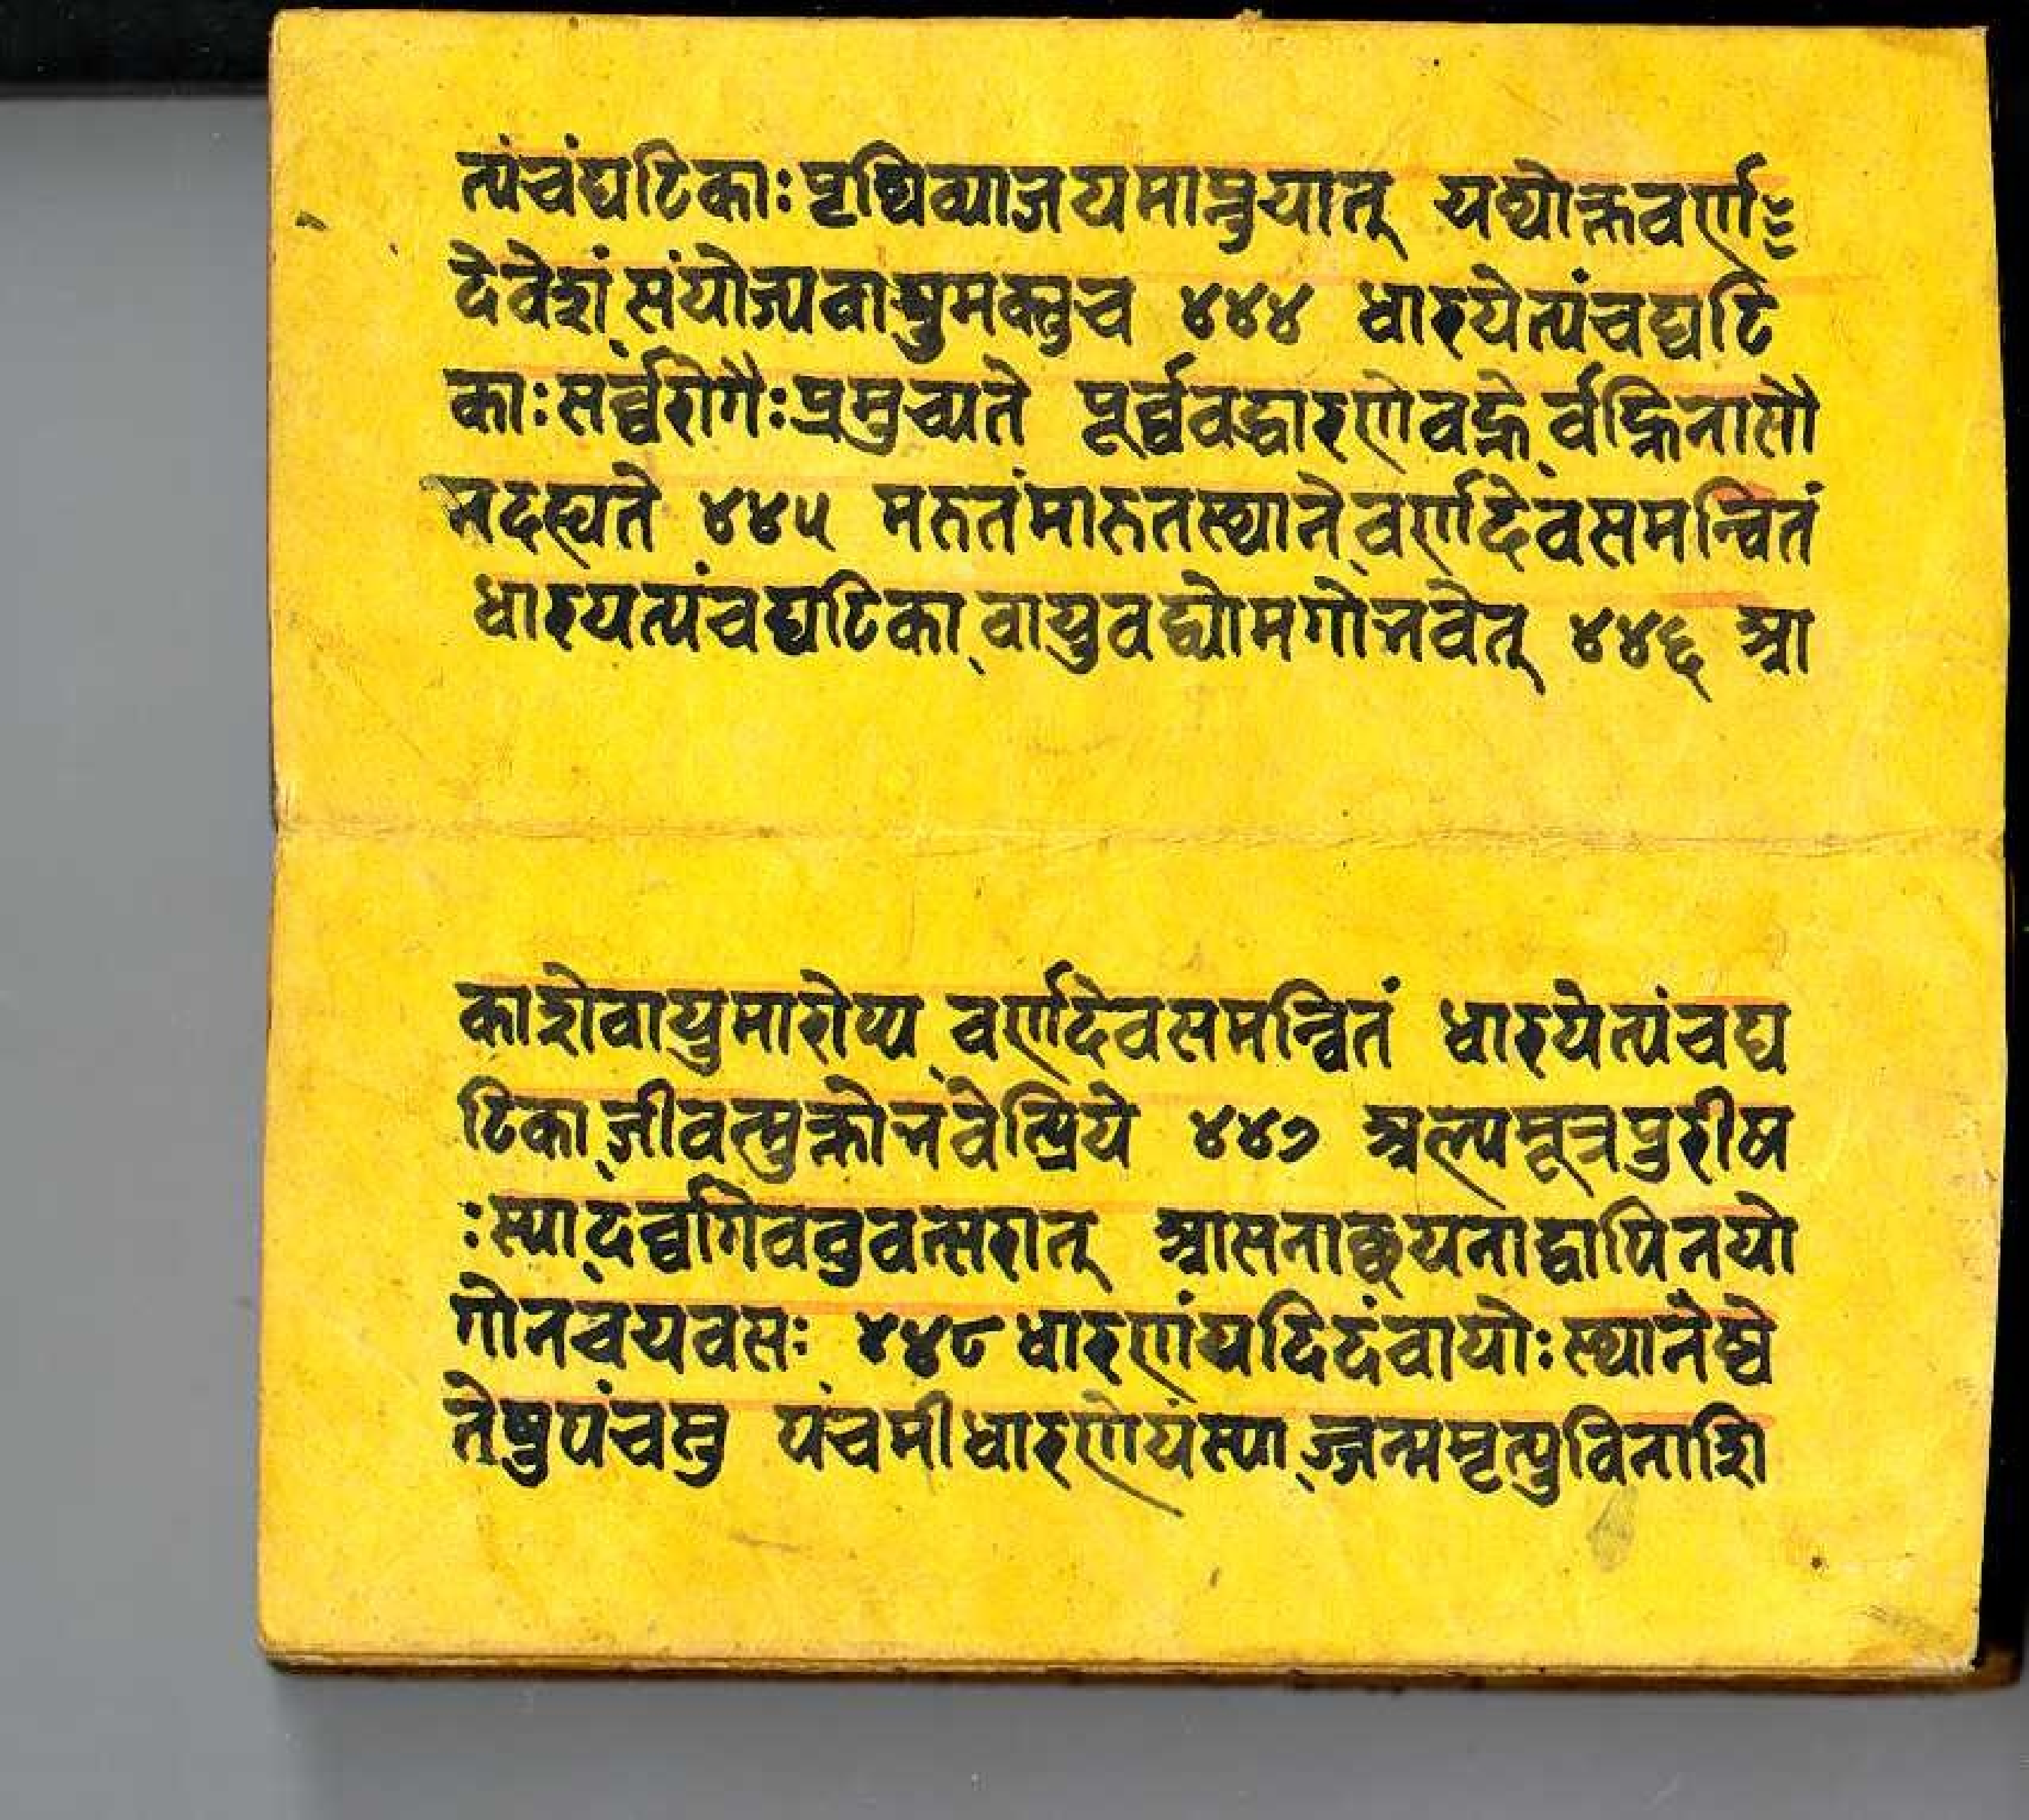 त्पंचंघटिकाः पृथिव्याजयमाप्नुयात् यथोक्तवर्ण
देवेशं संयोज्यवायुमक्तुच ४४४ धारयेत्पंचघटि
काः सर्व्वरोगैः प्रमुच्यते पूर्व्ववद्धारणेवह्ने र्वह्निनासौ
नदह्यते ४४५ मरुतंमारुतस्थाने वर्णदेवसमन्वितं
धारयत्पंचघटिका वायुवद्व्योमगोभवेत् ४४६ आ
काशेवायुमारोप्य वर्णदेवसमन्वितं धारयेत्पंचघ
टिका जीवत्मुक्तोभवेत्प्रिये ४४७ अल्पमूत्रपुरीष
ःस्यादर्व्वागेवतुवत्सरात् आसनाच्छयनाद्वापिनयो
गोनचयवसः ४४८ धारणंयदिदंवायोः स्थानेष्वे
तेषुपंचसु पंचमीधारणेयंस्या ज्जन्ममृत्युविनाशि